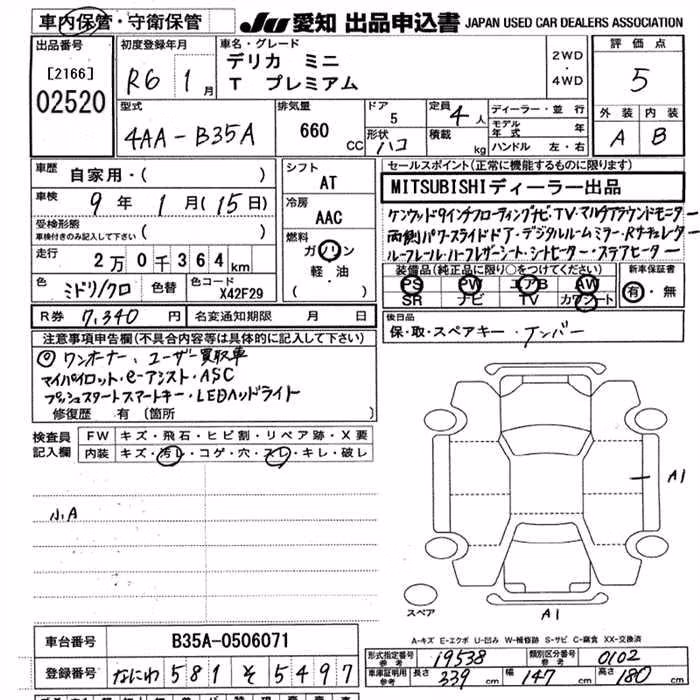 車内保管・守衛保管
JU 愛知 出品申込書 JAPAN USED CAR DEALERS ASSOCIATION
出品番号
[2166]
02520
初度登録年月
R6 年 1月
車名・グレード
デリカ ミニ
T プレミアム
2WD
・
4WD
評価点
5
外装 内装
A B
型式
4AA-B35A
排気量
660 CC
ドア
5
形状
ハコ
定員 4人
積載 kg
ディーラー・並行
モデル年式 年
ハンドル 左・右
車歴
自家用・( )
車検
9年 1月(15日)
受検形態
車検付きのみ記入して下さい ( )
走行
2万0千364km
色
ミドリ/クロ
色替
色コード
X42F29
シフト
AT
冷房
AAC
燃料
ガソリン
軽・油
( )
セールスポイント(正常に機能するものに限ります)
MITSUBISHIディーラー出品
ケンウッド9インチフローティングナビ・TV・マルチアラウンドモニター
両側パワースライドドア・デジタルルームミラー・Rサキュレーター
ルーフレール・ハーフレザーシート・シートヒーター・ステアヒーター
装備品(純正品に限り○をつけてください)
PS PW エアB AW
SR ナビ TV カワシート
新車保証書
有・無
R券 7,340円
名変通知期限 月 日
後日品
保・取・スペアキー・ナンバー
注意事項申告欄(不具合内容等は具体的に記入して下さい)
◎ワンオーナー、ユーザー買取車
マイパイロット・e-アシスト・ASC
プッシュスタートスマートキー・LEDヘッドライト
修復歴 有(箇所 )
検査員
記入欄
FW キズ・飛石・ヒビ割・リペア跡・X要
内装 キズ・汚レ・コゲ・穴・スレ・キレ・破レ
小A
A1
スペア
A1
A-キズ E-エクボ U-凹み W-補修跡 S-サビ C-腐食 XX-交換済
車台番号
B35A-0506071
登録番号
なにわ 581 そ 5497
型式指定番号
参考
19538
類別区分番号
参考
0102
車庫証明用
参考
長さ 339cm
幅 147cm
高さ 180cm